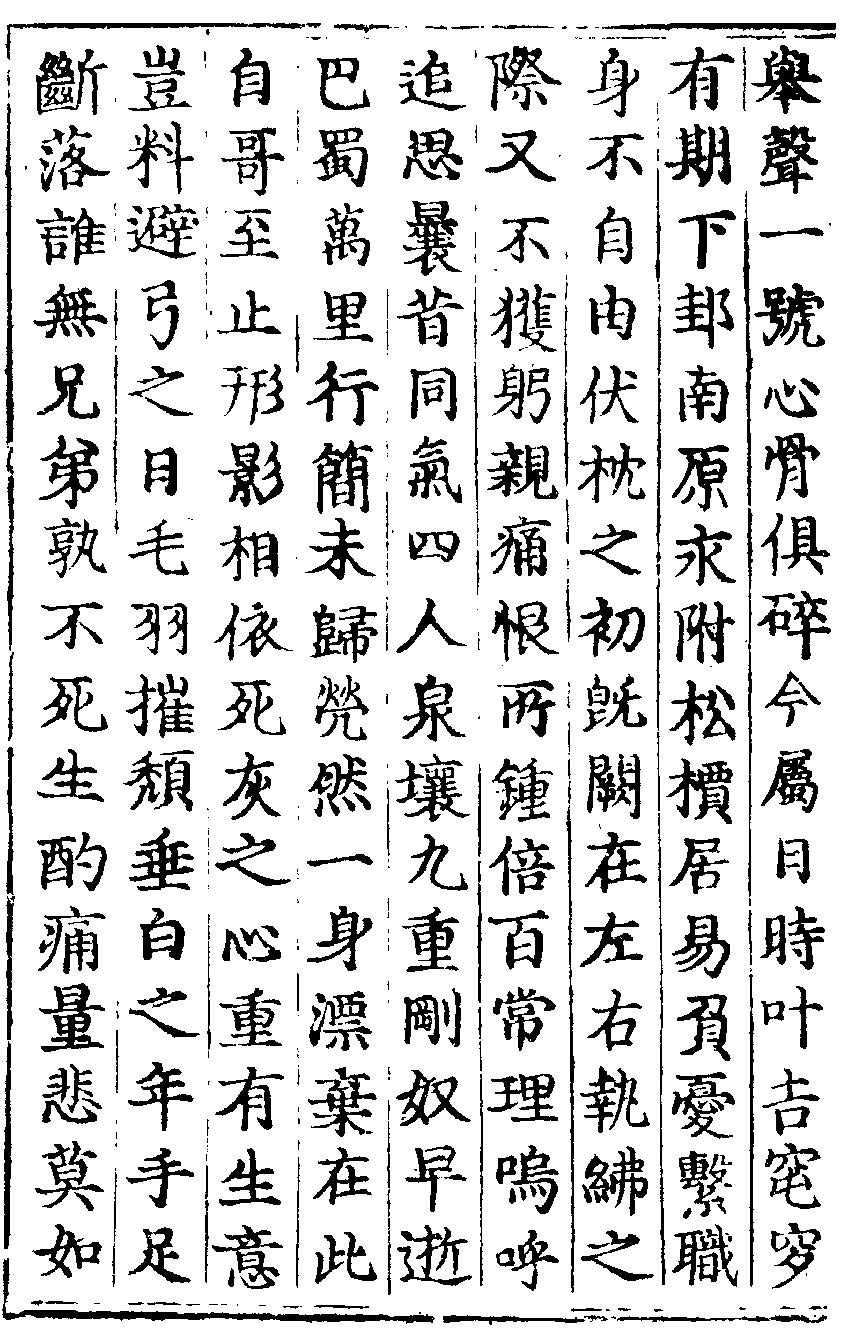 舉聲一號心骨俱碎今屬日時叶吉窀穸
有期下邽南原永附松檟居易負憂繫職
身不自由伏枕之初旣闕在左右執紼之
際又不獲躬親痛恨所鍾倍百常理嗚呼
追思曩昔同氣四人泉壤九重剛奴早逝
巴蜀萬里行簡未歸煢然一身漂棄在此
自哥至止形影相依死灰之心重有生意
豈料避弓之日毛羽摧頹垂白之年手足
斷落誰無兄弟孰不死生酌痛量悲莫如